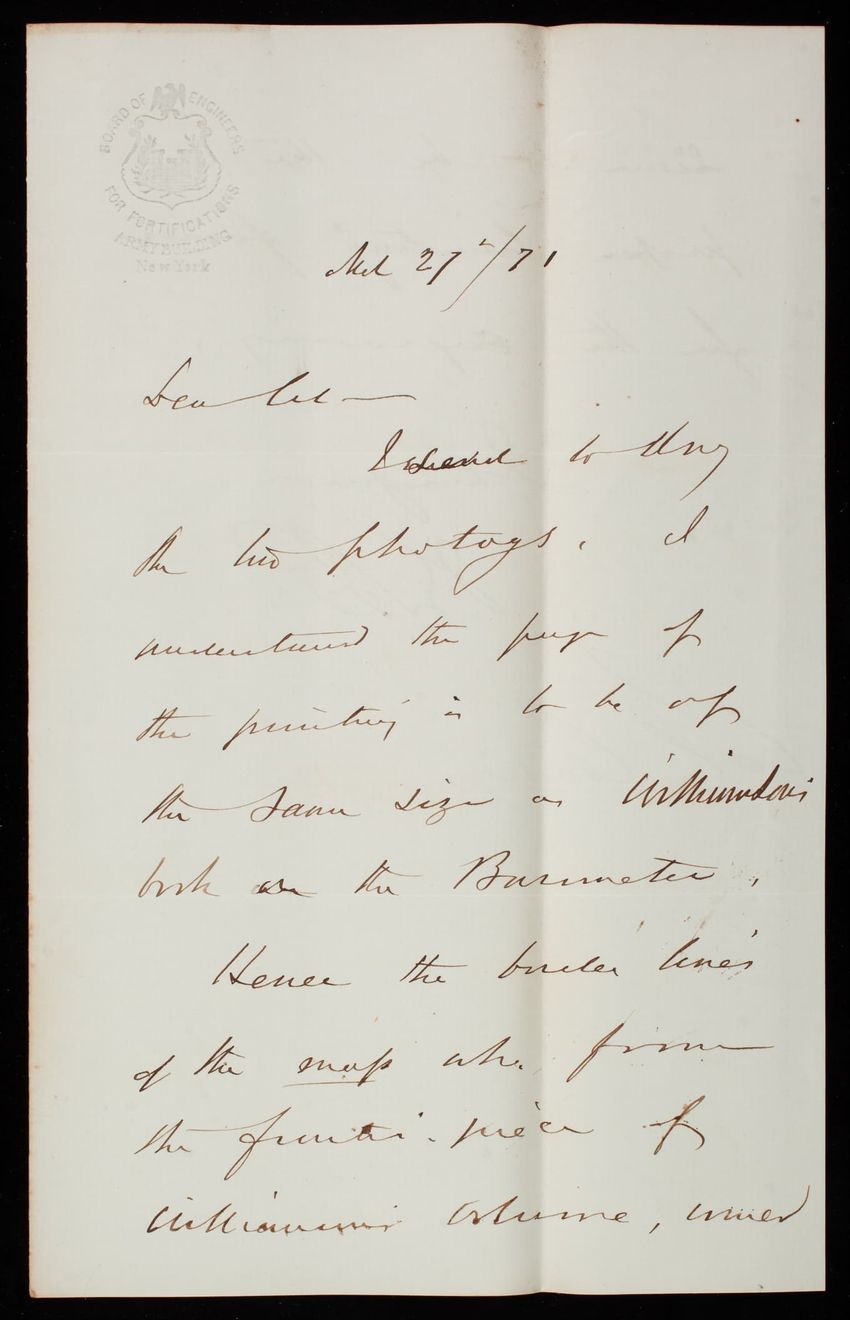 BOARD OF ENGINEERS
FOR FORTIFICATIONS
ARMY BUILDING
New York
Mch 27"/71
Dear Col —
I send to Hny
the two photogs. I
understand the page of
the printing is to be of
the same size as Williamson's
book on the Barometer.
Hence the border lines
of the map whc. form
the frontis-piece of
Williamson's volume, would